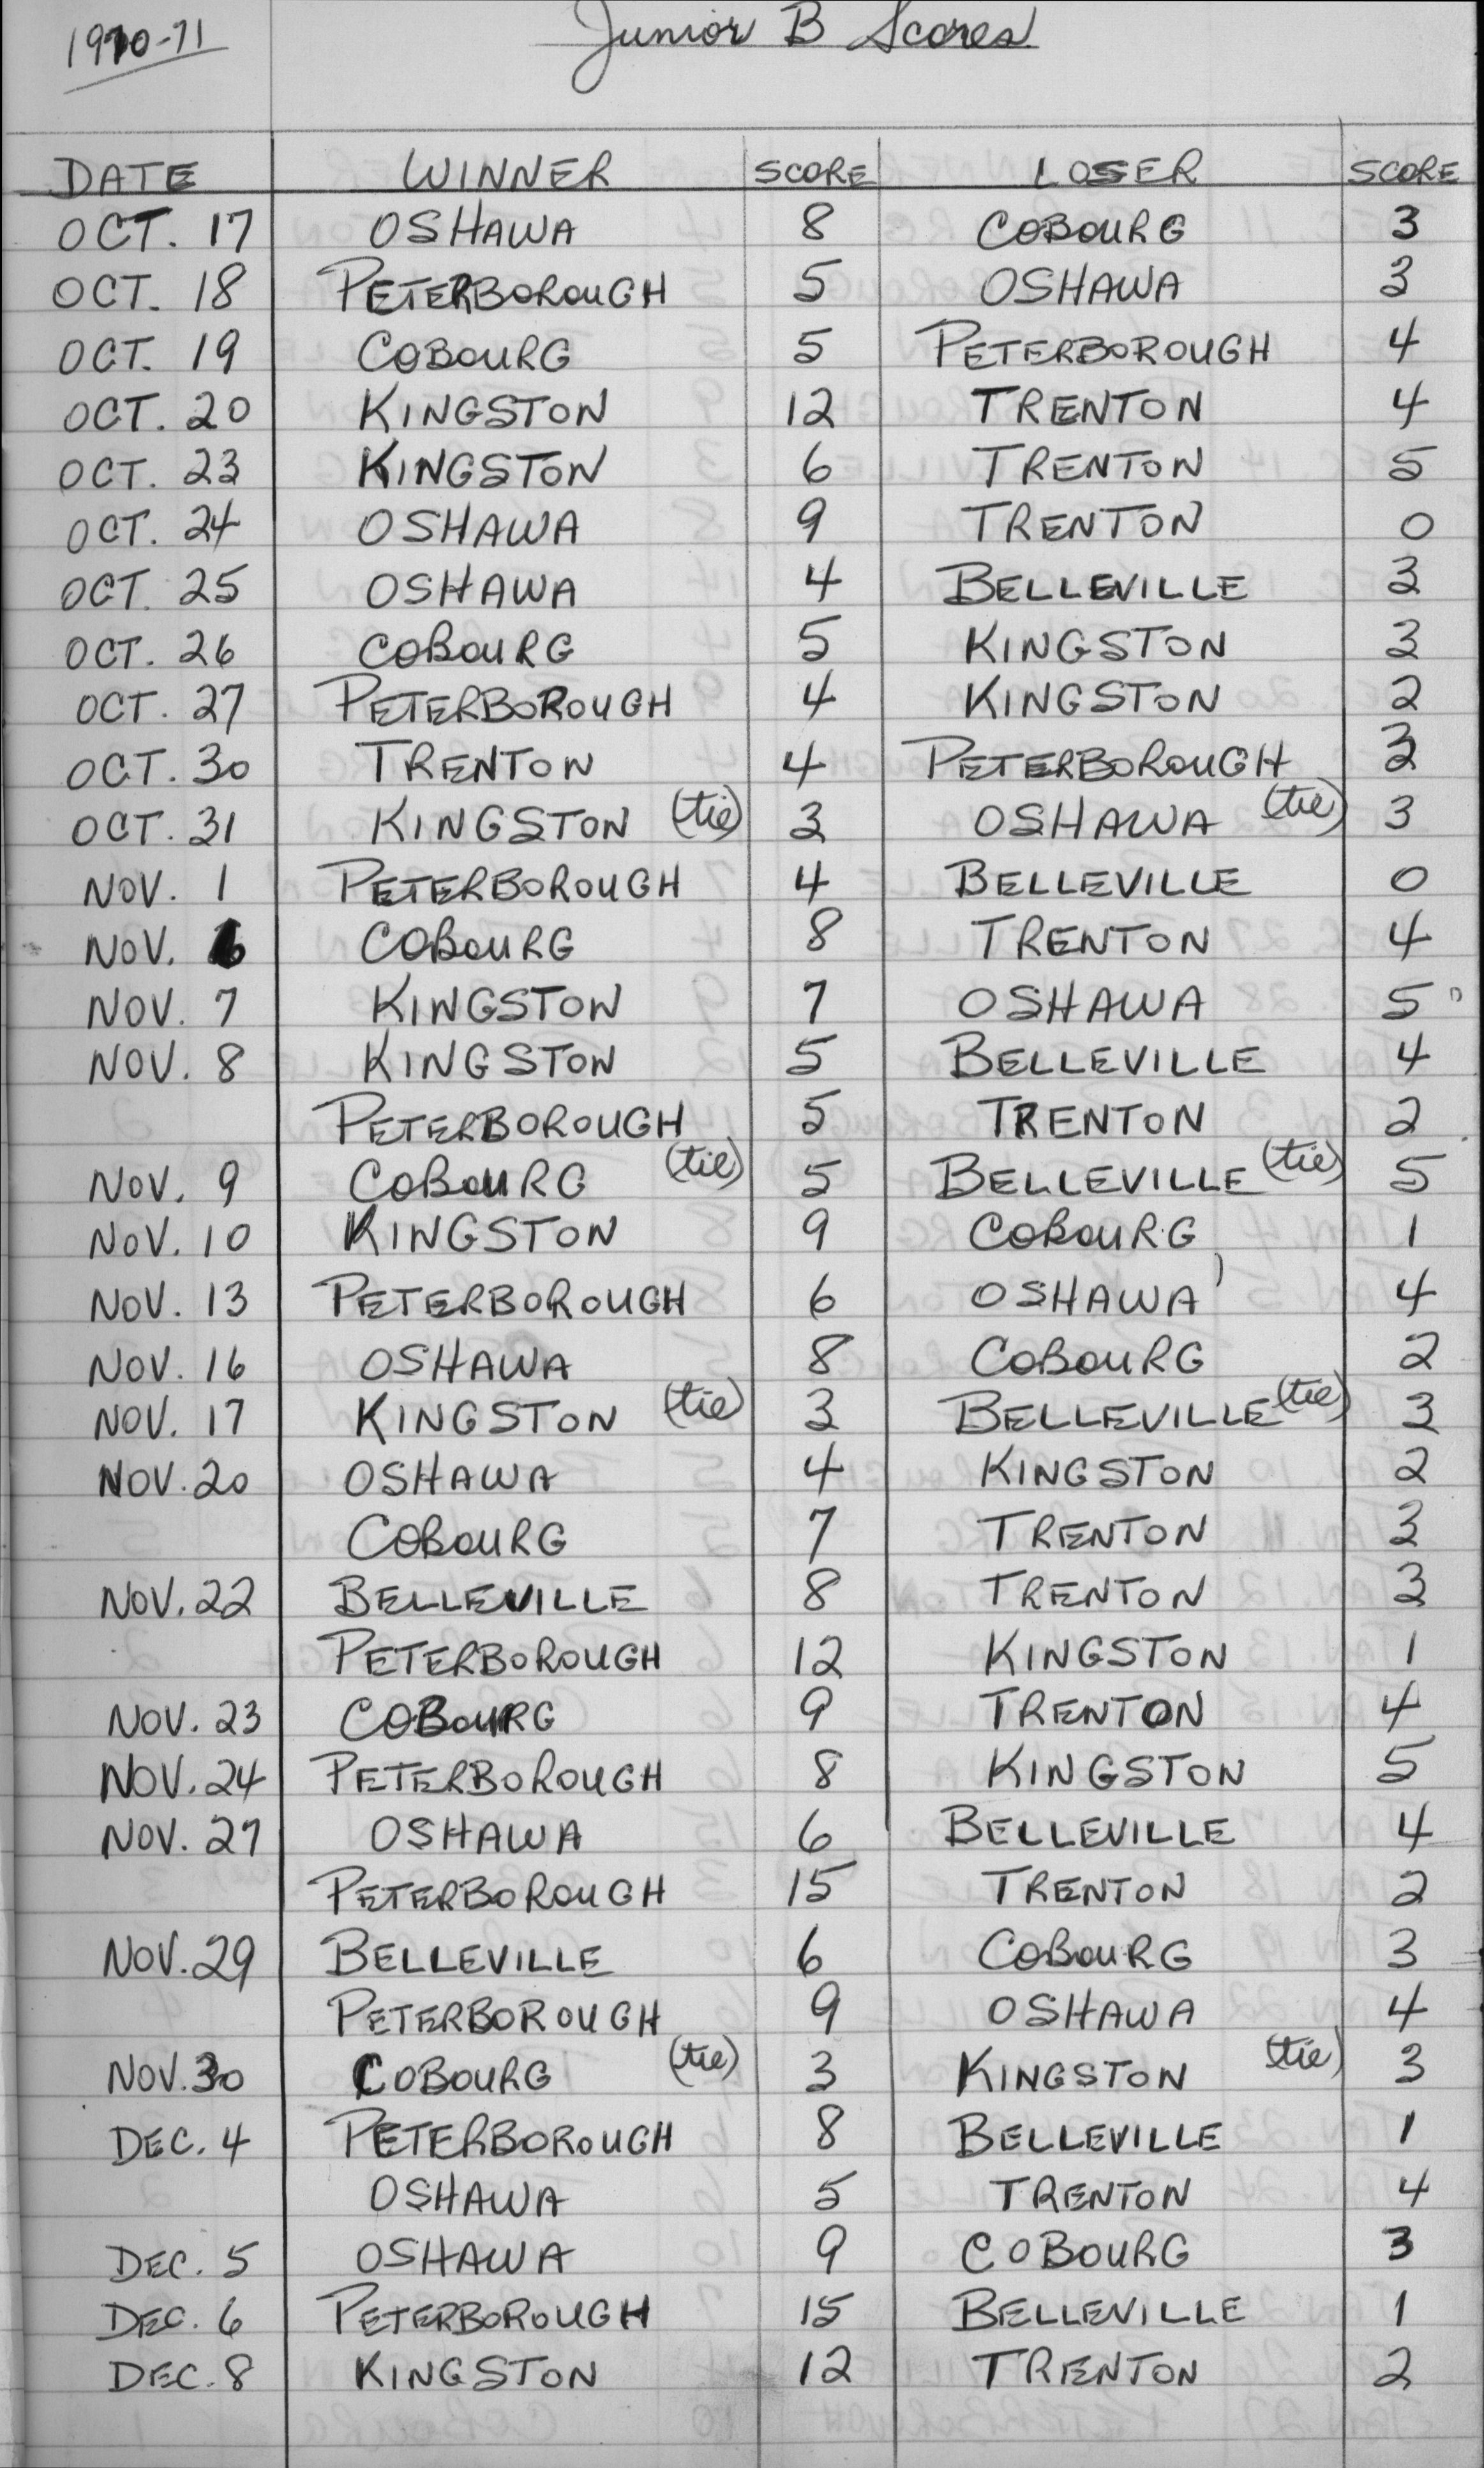 1970-71 Junior B Scores
DATE WINNER SCORE LOSER SCORE
OCT. 17 OSHAWA 8 COBOURG 3
OCT. 18 PETERBOROUGH 5 OSHAWA 3
OCT. 19 COBOURG 5 PETERBOROUGH 4
OCT. 20 KINGSTON 12 TRENTON 4
OCT. 23 KINGSTON 6 TRENTON 5
OCT. 24 OSHAWA 9 TRENTON 0
OCT. 25 OSHAWA 4 BELLEVILLE 3
OCT. 26 COBOURG 5 KINGSTON 3
OCT. 27 PETERBOROUGH 4 KINGSTON 2
OCT. 30 TRENTON 4 PETERBOROUGH 3
OCT. 31 KINGSTON (tie) 3 OSHAWA (tie) 3
NOV. 1 PETERBOROUGH 4 BELLEVILLE 0
NOV. 6 COBOURG 8 TRENTON 4
NOV. 7 KINGSTON 7 OSHAWA 5
NOV. 8 KINGSTON 5 BELLEVILLE 4
PETERBOROUGH 5 TRENTON 2
NOV. 9 COBOURG (tie) 5 BELLEVILLE (tie) 5
NOV. 10 KINGSTON 9 COBOURG 1
NOV. 13 PETERBOROUGH 6 OSHAWA 4
NOV. 16 OSHAWA 8 COBOURG 2
NOV. 17 KINGSTON (tie) 3 BELLEVILLE (tie) 3
NOV. 20 OSHAWA 4 KINGSTON 2
COBOURG 7 TRENTON 3
NOV. 22 BELLEVILLE 8 TRENTON 3
PETERBOROUGH 12 KINGSTON 1
NOV. 23 COBOURG 9 TRENTON 4
NOV. 24 PETERBOROUGH 8 KINGSTON 5
NOV. 27 OSHAWA 6 BELLEVILLE 4
PETERBOROUGH 15 TRENTON 2
NOV. 29 BELLEVILLE 6 COBOURG 3
PETERBOROUGH 9 OSHAWA 4
NOV. 30 COBOURG (tie) 3 KINGSTON (tie) 3
DEC. 4 PETERBOROUGH 8 BELLEVILLE 1
OSHAWA 5 TRENTON 4
DEC. 5 OSHAWA 9 COBOURG 3
DEC. 6 PETERBOROUGH 15 BELLEVILLE 1
DEC. 8 KINGSTON 12 TRENTON 2